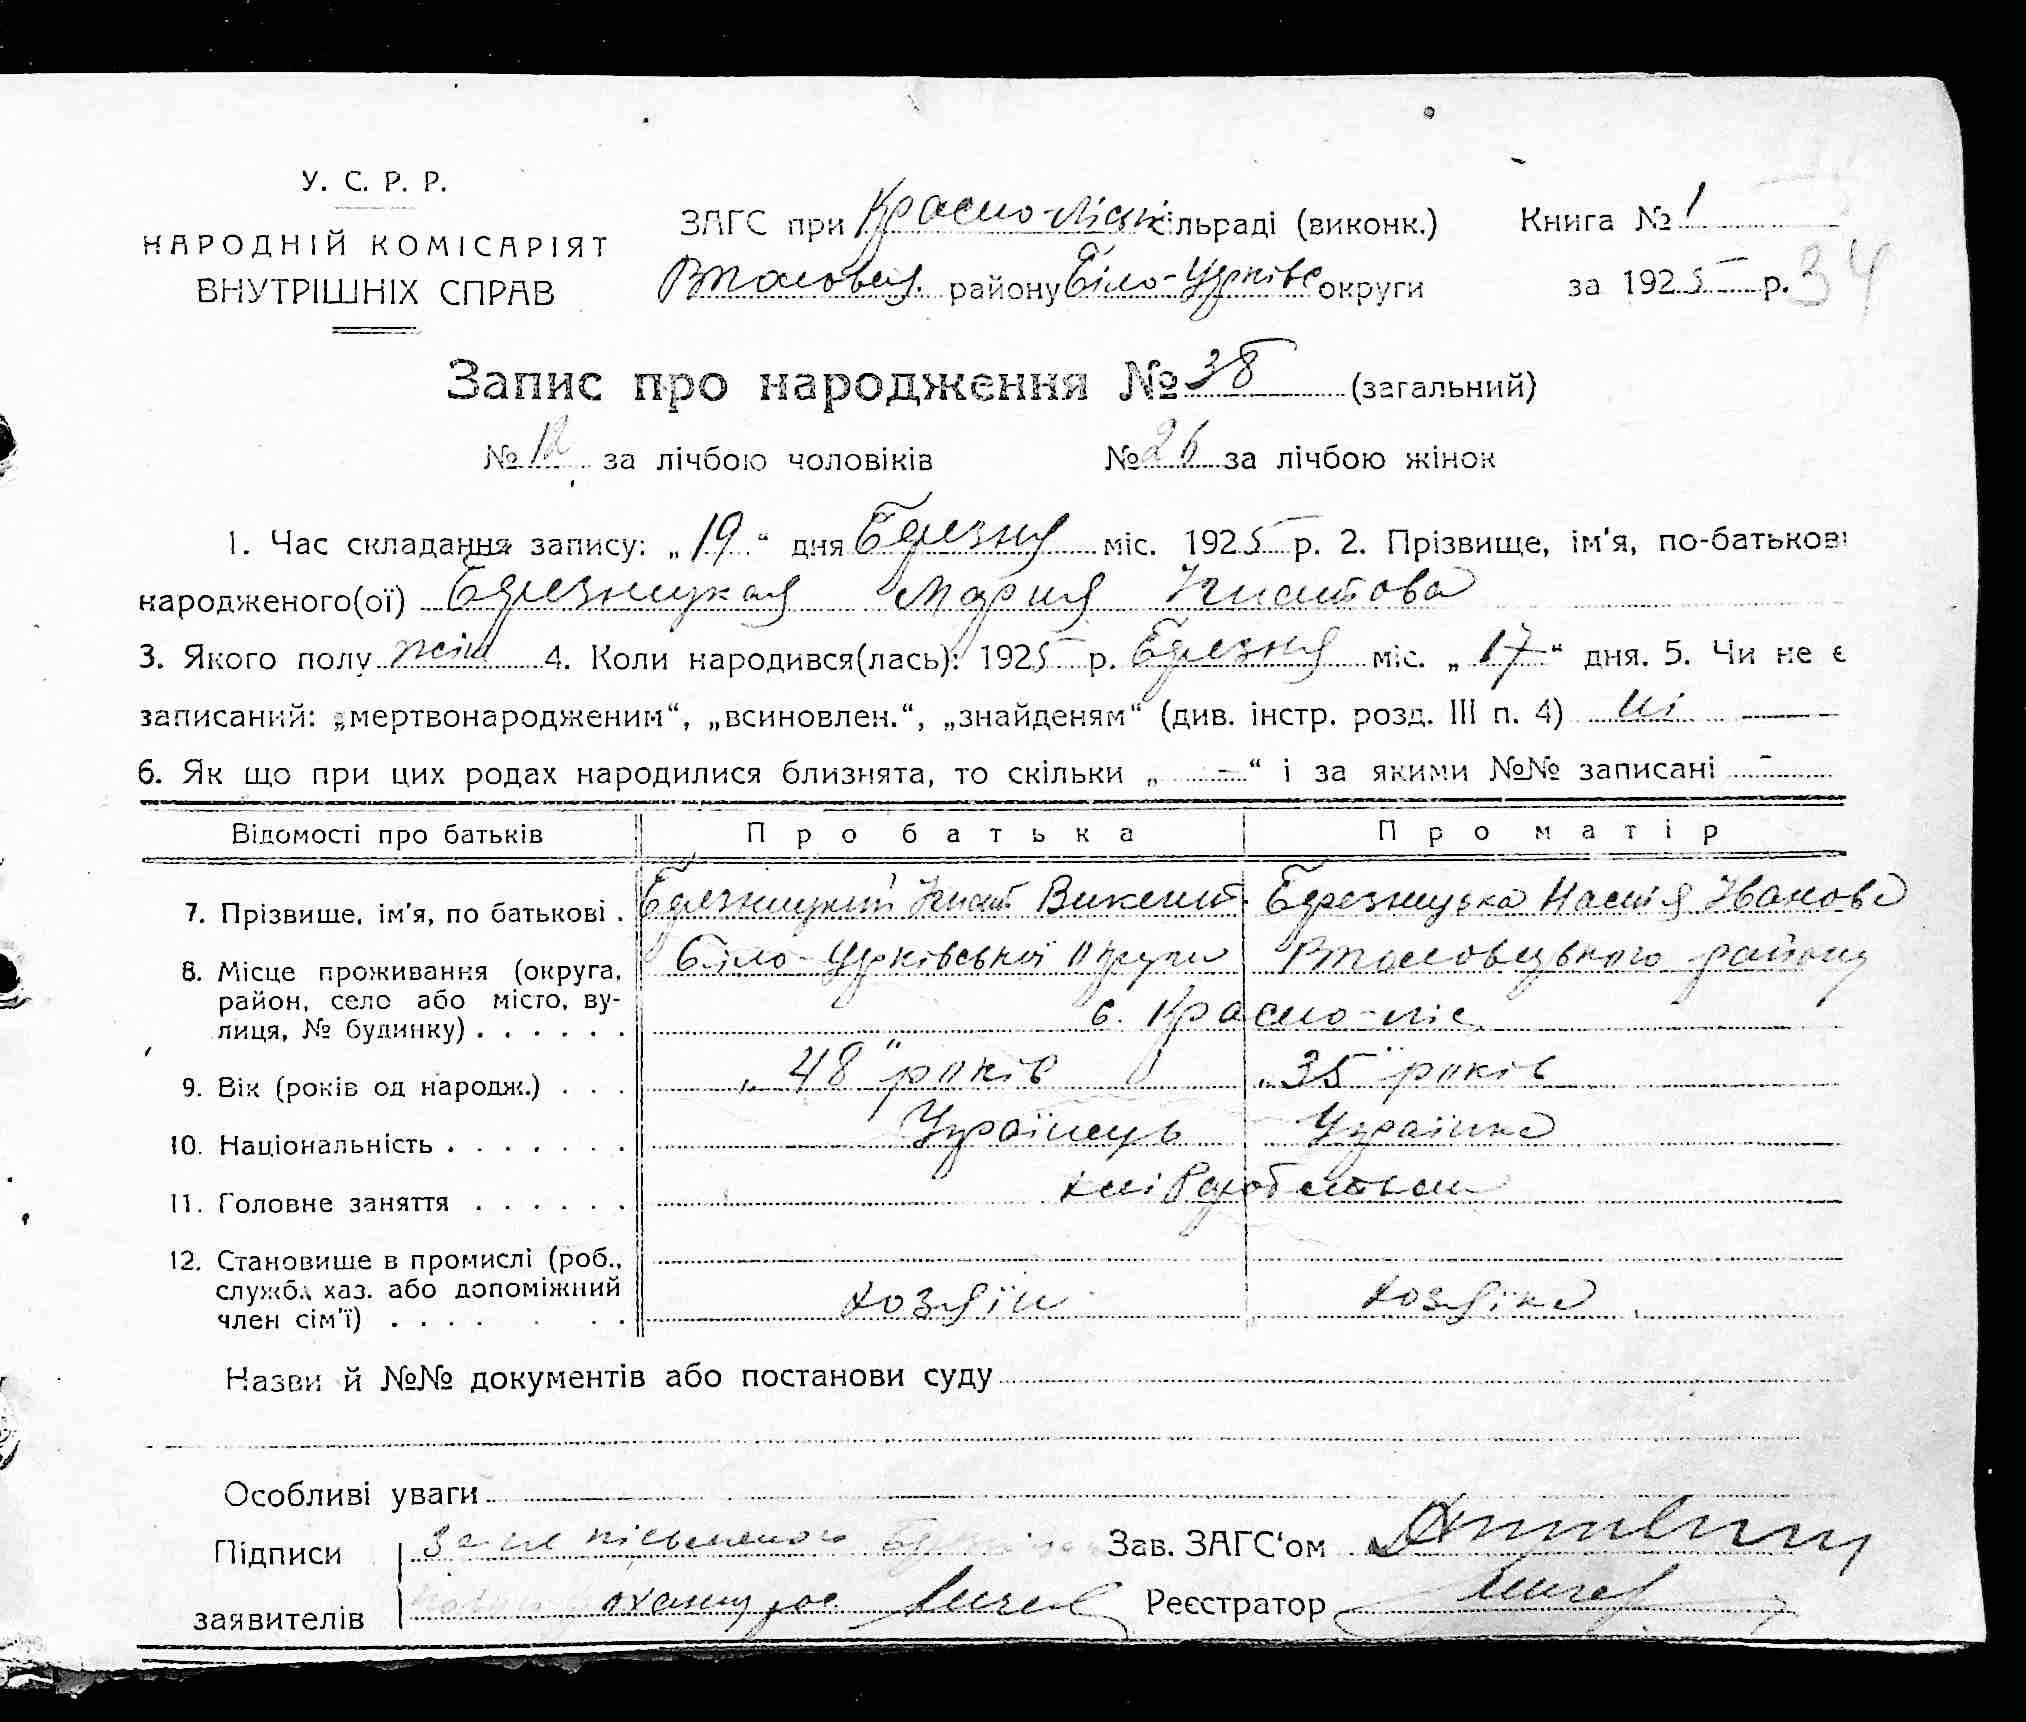 У. С. Р. Р.
НАРОДНІЙ КОМІСАРІЯТ
ВНУТРІШНІХ СПРАВ
ЗАГС при Красно-Ліськ сільраді (виконк.)
району Біло-Церківс округи
Книга № 1
за 1925 р.
34
Запис про народження № 38 (загальний)
№ 12 за лічбою чоловіків № 26 за лічбою жінок
1. Час складання запису: „19“ дня Березня міс. 1925 р. 2. Прізвище, ім'я, по-батькові
народженого(ої) Березницкая Мария Игнатова
3. Якого полу жін 4. Коли народився(лась): 1925 р. Березня міс. „17“ дня. 5. Чи не є
записаний: „мертвонародженим“, „всиновлен.“, „знайденям“ (див. інстр. розд. III п. 4) ні —
6. Як що при цих родах народилися близнята, то скільки „ — “ і за якими №№ записані -
Відомості про батьків Про батька Про матір
7. Прізвище, ім'я, по батькові . Березницкий Игнат Викент. Березницька Настя Иванова
8. Місце проживання (округа, Біло-Церківської Округи району
район, село або місто, ву-
лиця, № будинку) . . . . . . с. Красно-ліс
9. Вік (років од народж.) . . . „48“ років „35“ років
10. Національність . . . . . . . Українець Українка
11. Головне заняття . . . . . . хліборобством
12. Становище в промислі (роб.,
служб. хаз. або допоміжний
член сім'ї) . . . . . . . хозяїн хозяїка
Назви й №№ документів або постанови суду
Особливі уваги
Підписи
заявителів
Зав. ЗАГС'ом
Реєстратор